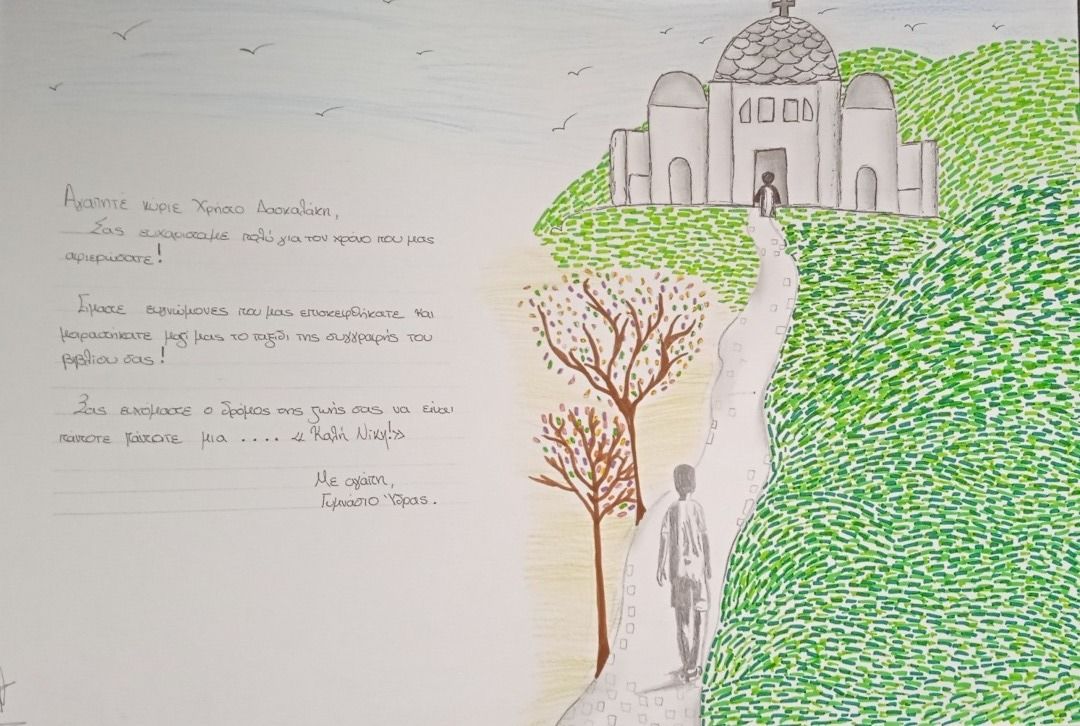 Αγαπητέ κύριε Χρήστο Δασκαλάκη,
Σας ευχαριστούμε πολύ για τον χρόνο που μας
αφιερώσατε!
Είμαστε ευγνώμονες που μας επισκεφθήκατε και
μοιραστήκατε μαζί μας το ταξίδι της συγγραφής του
βιβλίου σας!
Σας ευχόμαστε ο δρόμος της ζωής σας να είναι
πάντοτε πάντοτε μια .... «Καλή Νίκη!»
Με αγάπη,
Γυμνάσιο Ύδρας.